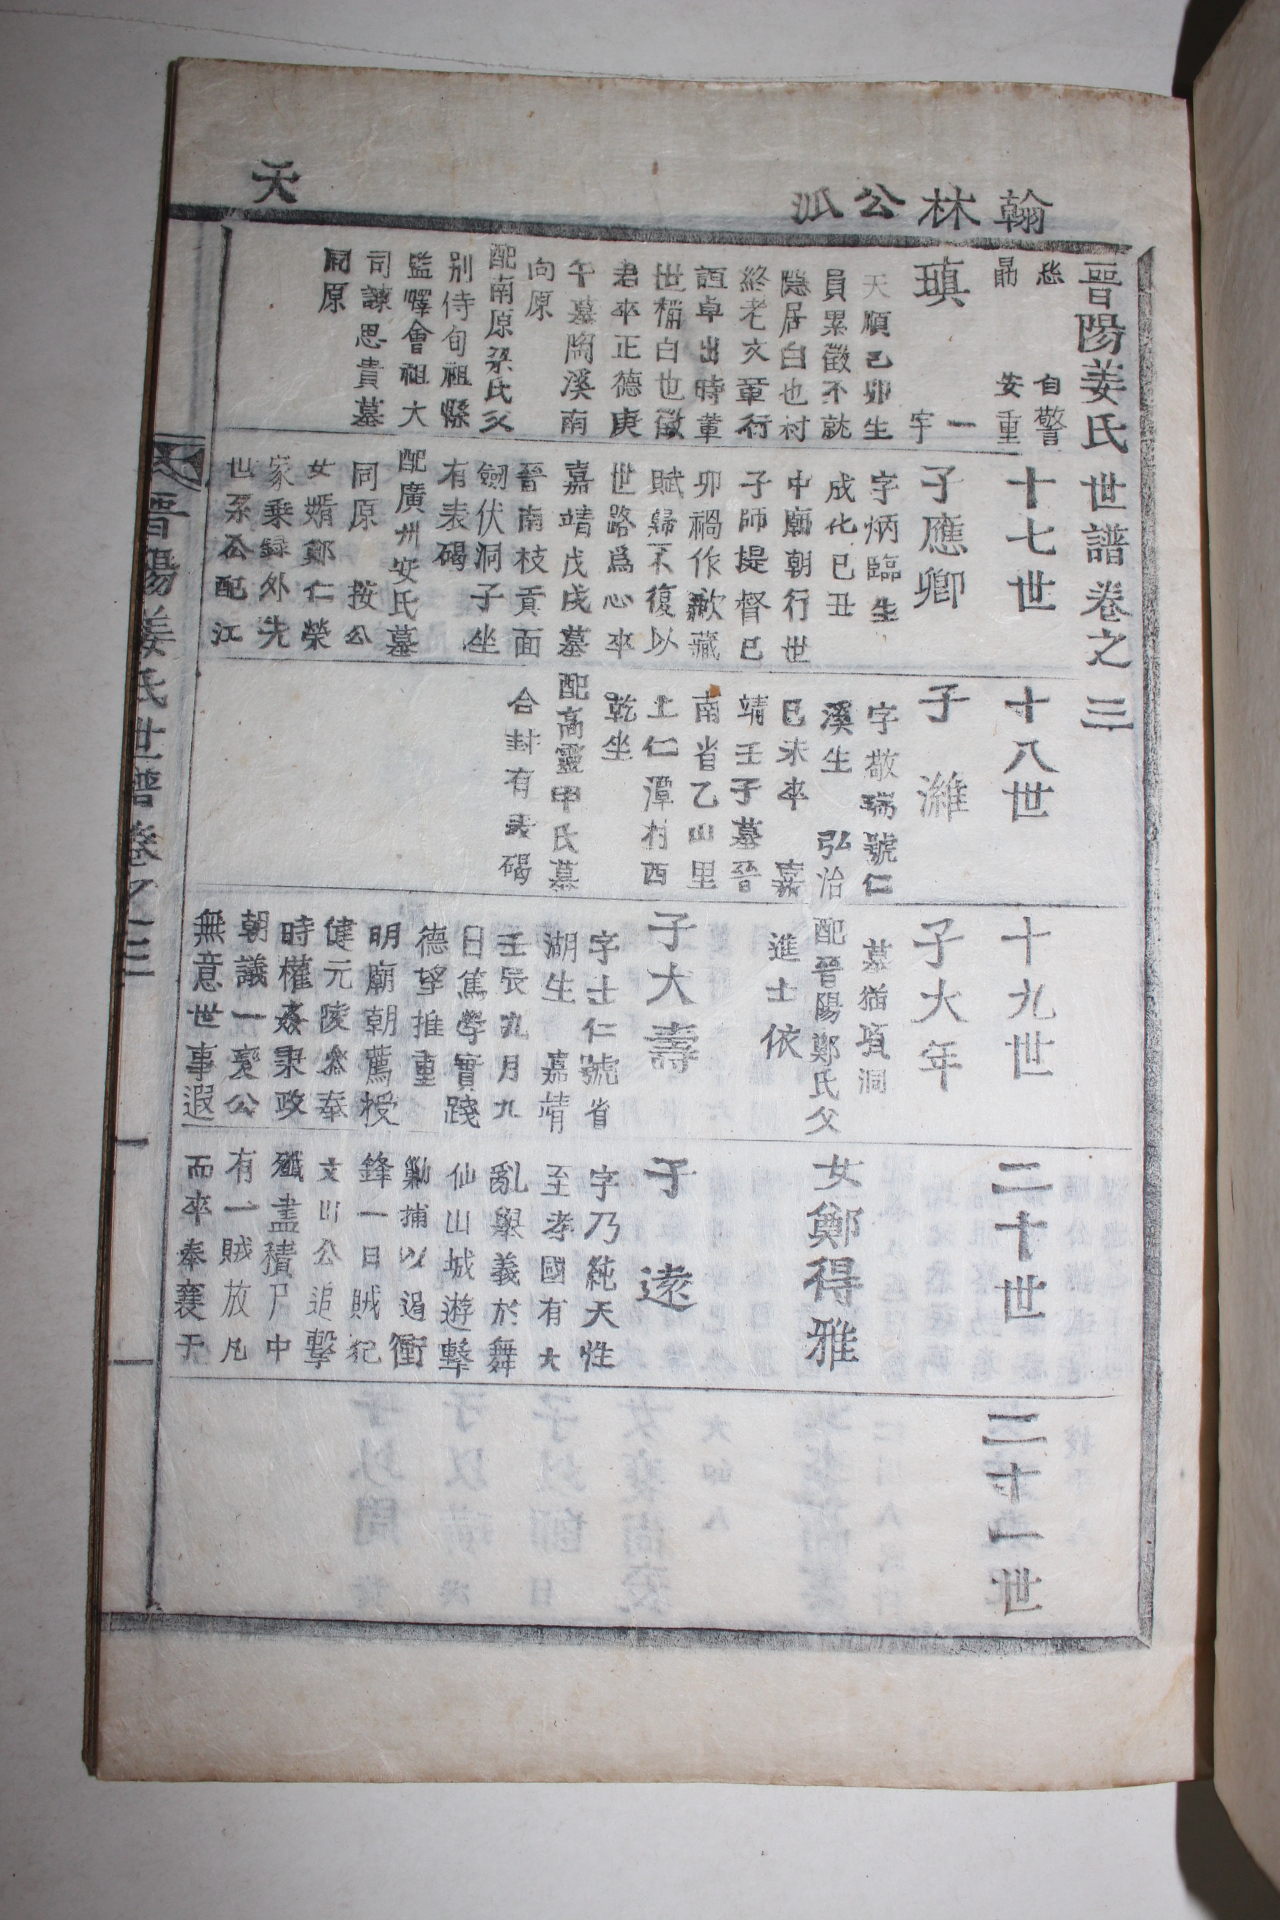 天
翰林公派
晋陽姜氏世譜卷之三
十七世
十八世
十九世
二十世
二十一世
自警
安重
瑱
一字
天順己卯生
員累徵不就
隱居白也村
終老文章行
誼卓出時輩
世稱白也徵
君卒正德庚
午墓陶溪南
向原
配南原梁氏父
別侍旬祖縣
監嶧會祖大
司諫思貴墓
同原
子應卿
字炳臨生
成化已丑
中廟朝行世
子師提督已
卯禍作歗藏
賦歸不復以
世路爲心卒
嘉靖戊戌墓
晉南枝貢面
劒伏洞子坐
有表碣
配廣州安氏墓
同原 按公
女婿鄭仁榮
家乗録外先
世系公配江
子濰
字敬瑞號仁
溪生 弘治
已未卒 嘉
靖壬子墓晉
南省乙山里
上仁潭村西
乾坐
配高靈申氏墓
合封有表碣
子大年
墓猶項洞
配晉陽鄭氏父
進士依
子大壽
字士仁號省
湖生 嘉靖
壬辰九月九
日篤學實踐
德望推重
明廟朝薦授
健元陵參奉
時權姦秉政
朝議一變公
無意世事遐
女鄭得雅
子遠
字乃純天性
至孝國有大
亂擧義於舞
仙山城遊擊
勦捕以遏衝
鋒一日賊犯
文山公追擊
殲盡積尸中
有一賊放丸
而卒奉襄于
晋陽姜氏世譜卷之三
一